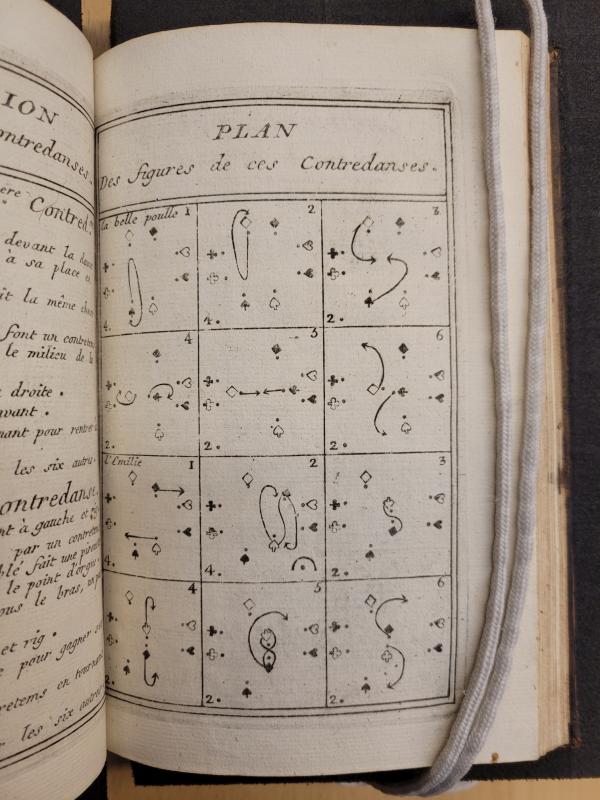 ION
ontredanses.
ère Contred.
devant la
à sa place
it la même
font un contretem
le milieu de la
droite.
avant.
nant pour rentrer
les six autres
ontredanse.
nt à gauche et
par un contretem
blé fait une
le point d'orgue
ous le bras, un
et rig.
pour gagner
retems en tournan
les six autres
PLAN
Des figures de ces Contredanses.
la belle poulle 1
2
3
4.
4.
2.
4
5
6
2.
2.
2.
l'Emilie 1
2
3
4.
4.
2.
4
5
6
2.
2.
2.